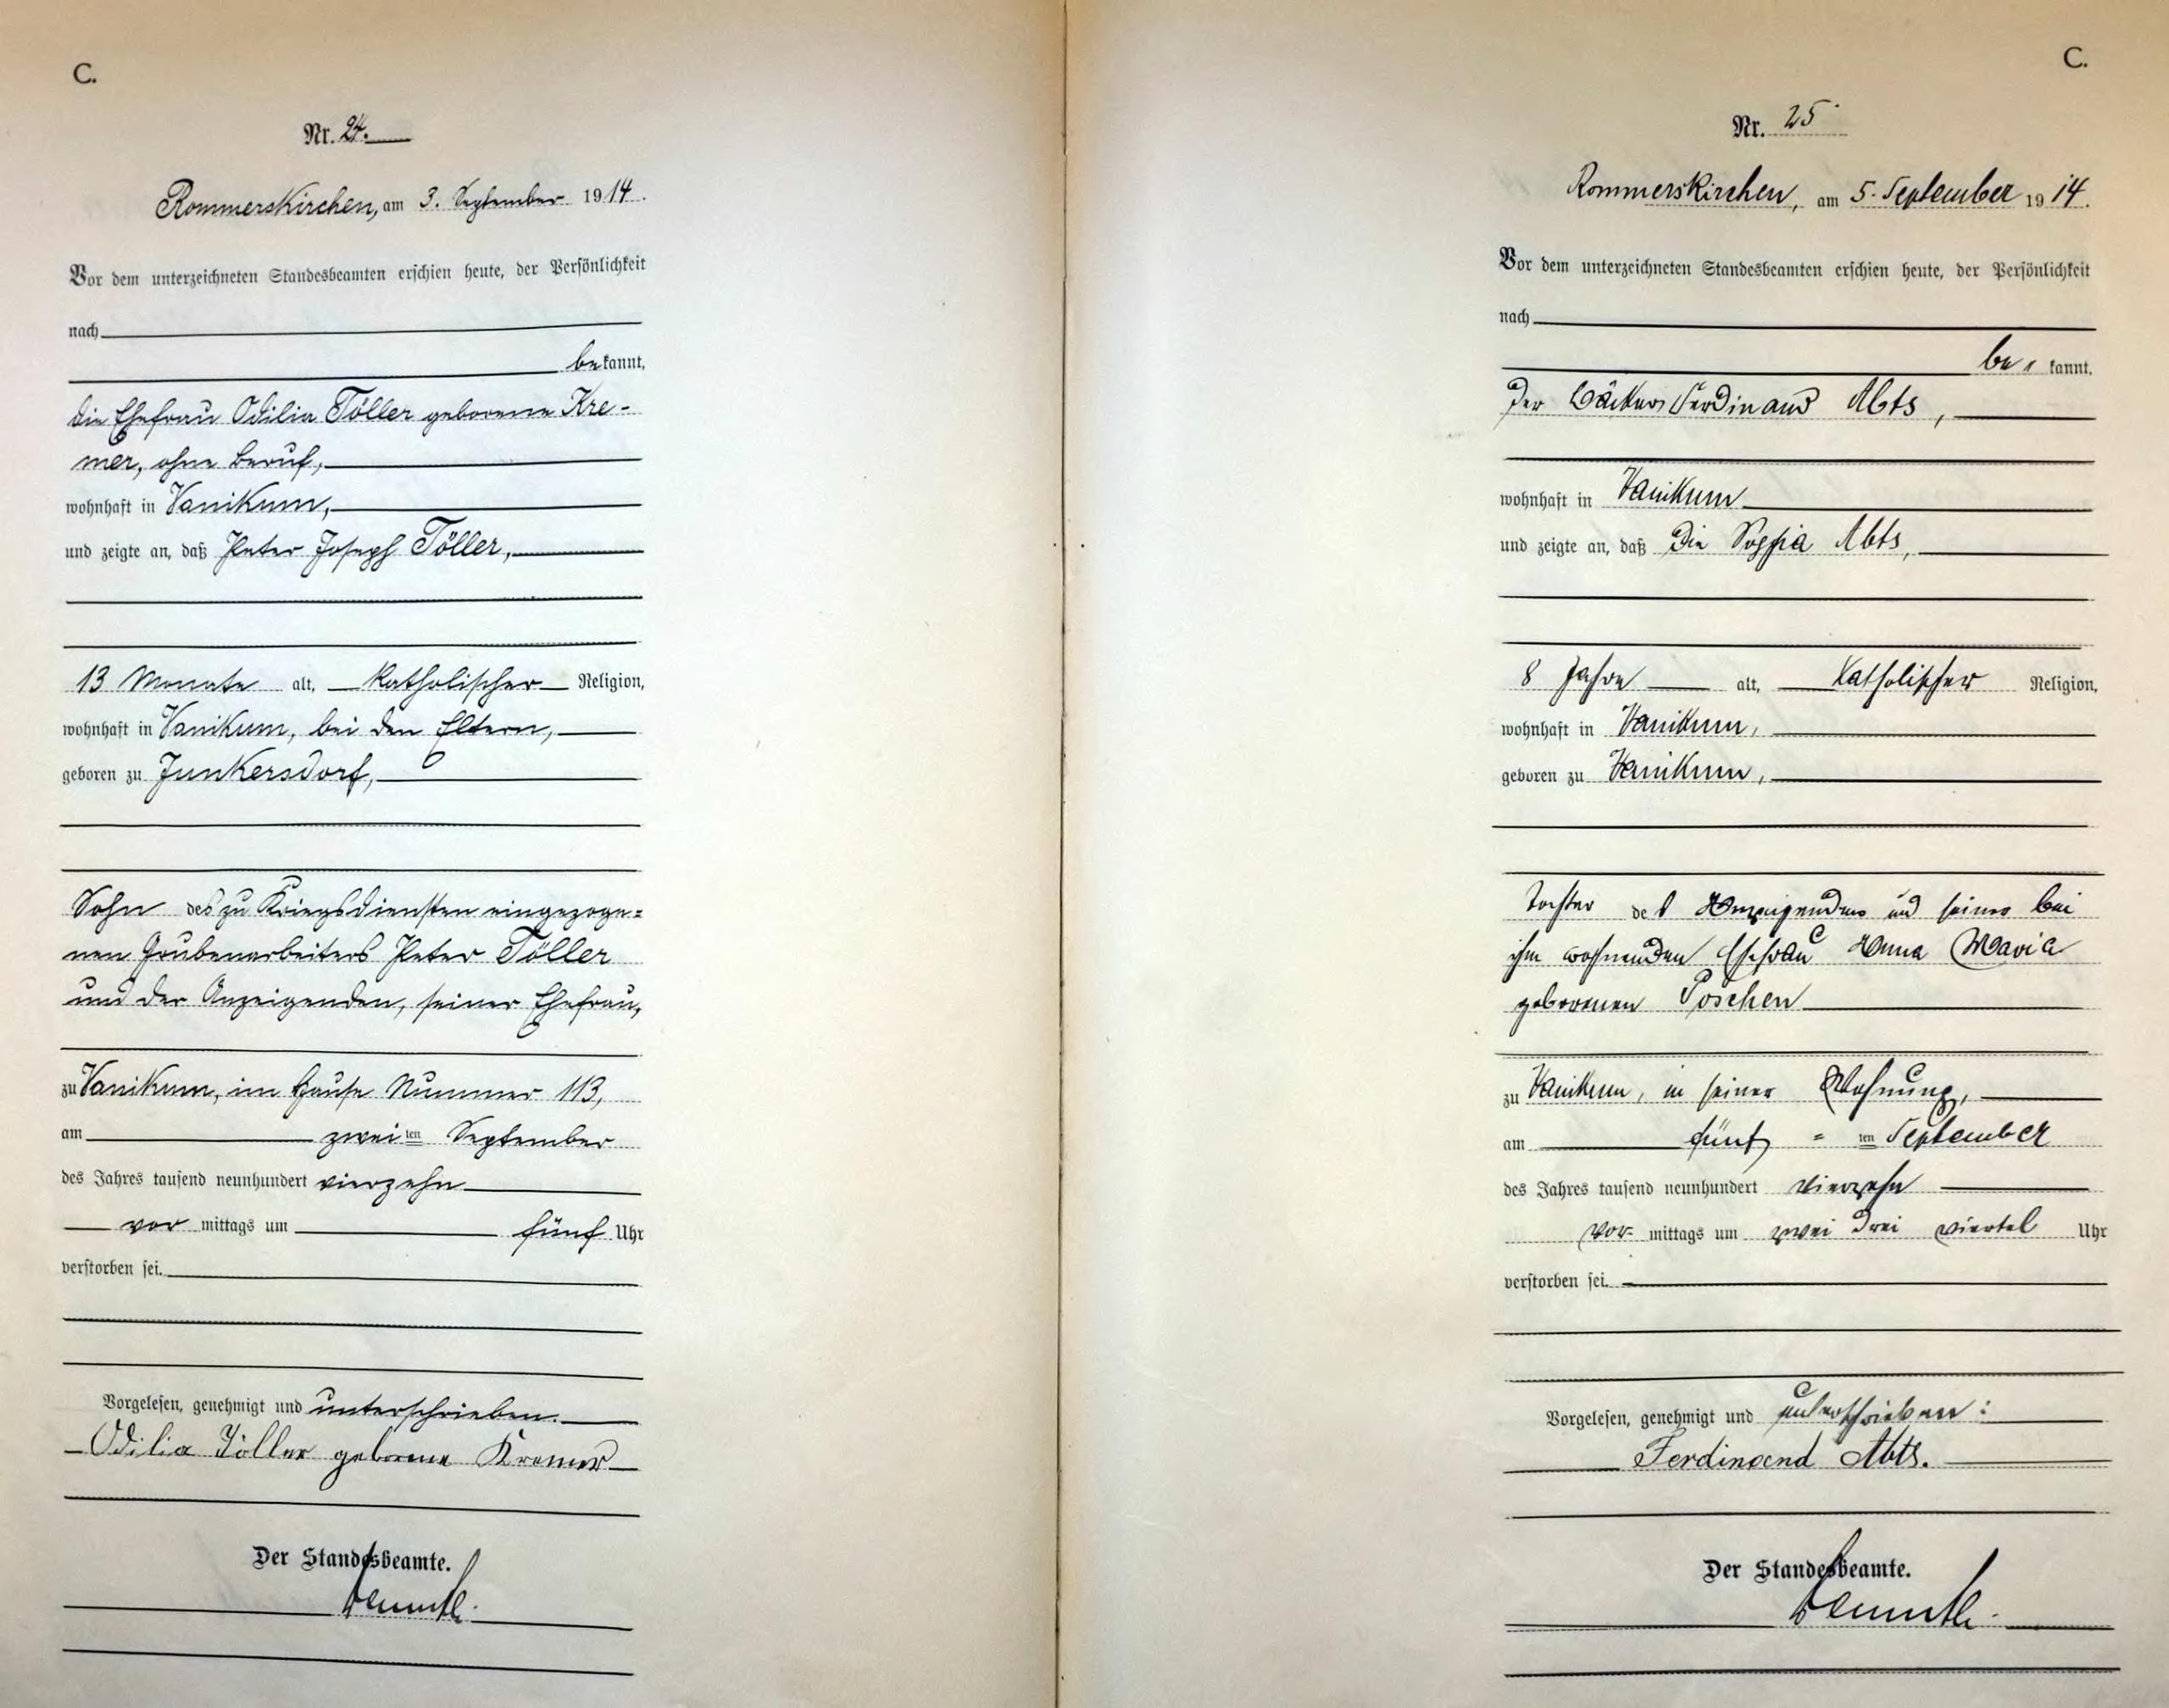 C.
Nr. 24.
Rommerskirchen, am 3. September 1914.
Vor dem unterzeichneten Standesbeamten erschien heute, der Persönlichkeit
nach
be kannt,
die Ehefrau Odilia Töller geborene Kre-
mer, ohne Beruf,
wohnhaft in Vanikum,
und zeigte an, daß Peter Joseph Töller,
13 Monate alt, katholischer Religion,
wohnhaft in Vanikum, bei den Eltern,
geboren zu Junkersdorf,
Sohn des zu Kriegsdiensten eingezoge-
nen Grubenarbeiters Peter Töller
und der Anzeigenden, seiner Ehefrau,
zu Vanikum, im Hause Nummer 113,
am zwei ten September
des Jahres tausend neunhundert vierzehn
vor mittags um fünf Uhr
verstorben sei.
Vorgelesen, genehmigt und unterschrieben.
Odilia Töller geborene Kremer
Der Standesbeamte.
C.
Nr. 25
Rommerskirchen, am 5. September 1914.
Vor dem unterzeichneten Standesbeamten erschien heute, der Persönlichkeit
nach
be kannt,
Der Bäcker Ferdinand Abts,
wohnhaft in Vanikum
und zeigte an, daß Die Sophia Abts,
8 Jahre alt, katholischer Religion,
wohnhaft in Vanikum,
geboren zu Vanikum,
Tochter des Anzeigenden und seiner bei
ihm wohnenden Ehefrau Anna Maria
geborenen Poschen
zu Vanikum, in seiner Wohnung,
am fünf = ten September
des Jahres tausend neunhundert vierzehn
vor- mittags um zwei drei viertel Uhr
verstorben sei.
Vorgelesen, genehmigt und unterschrieben:
Ferdinand Abts.
Der Standesbeamte.